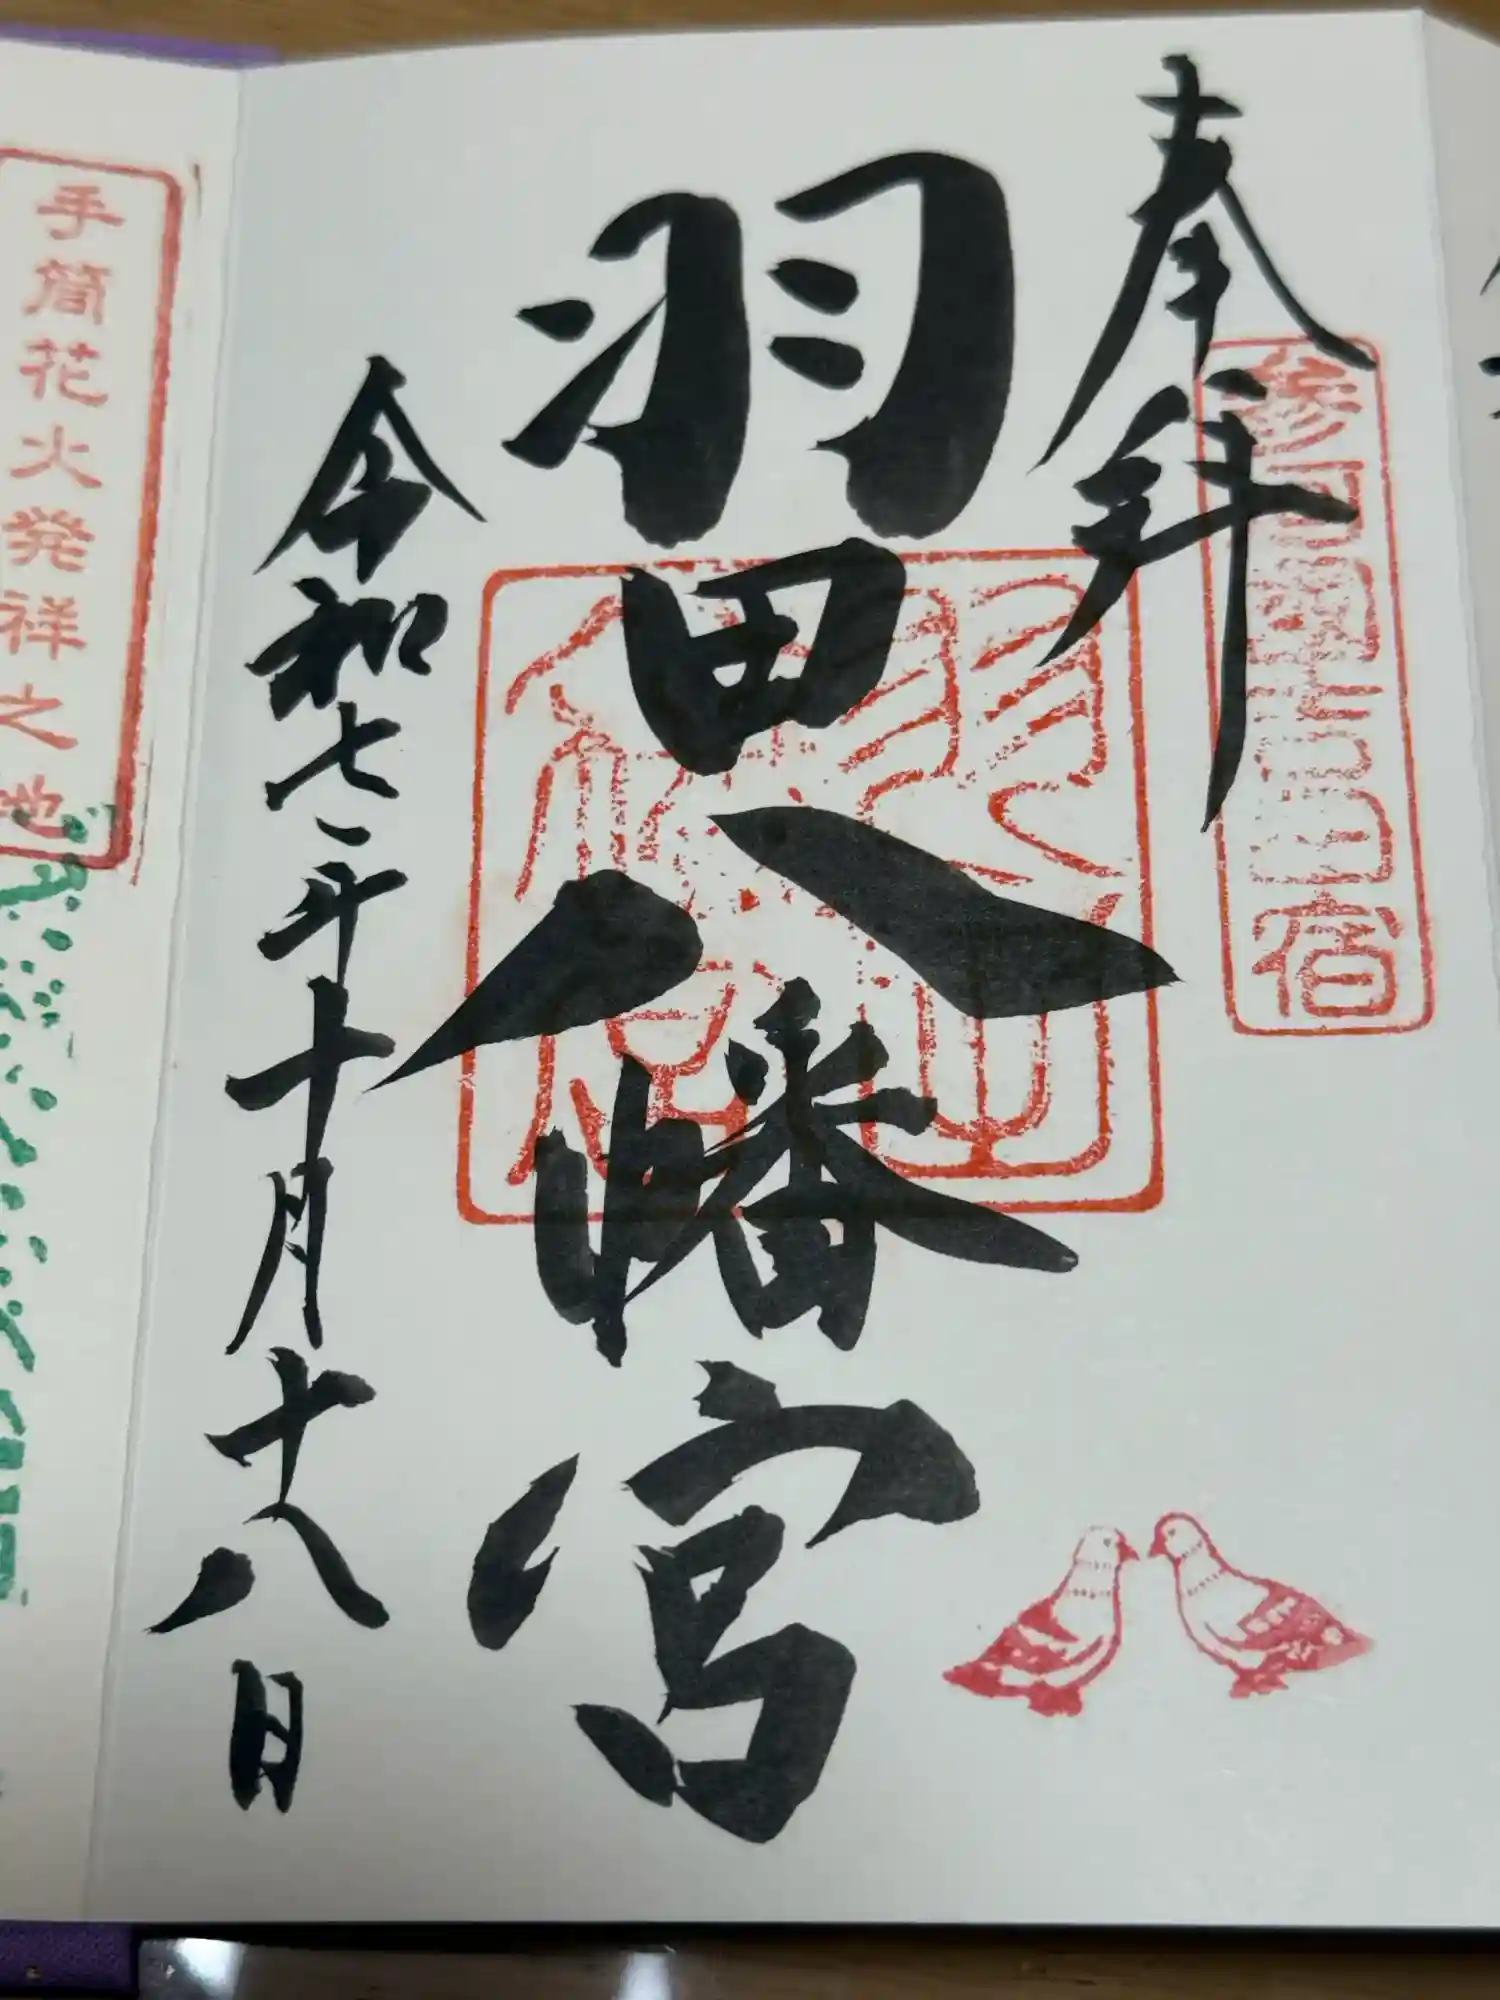 奉拝
参河國吉田宿
羽田八幡宮
令和七年十月十八日
手筒花火発祥之地